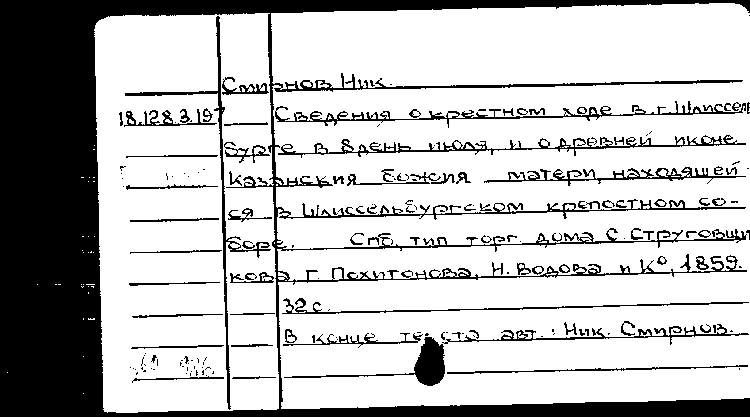 Смирнов, Ник.
18.128.3.197 Сведения о крестном ходе в г. Шлиссель
бурге, в 8 день июля, и о древней иконе
Казанския божия матери, находящей
ся в Шлиссельбургском крепостном со-
боре. Спб, тип торг. дома С. Струговщи
кова, Г. Похитонова, Н. Водова и К°, 1859.
32 с.
В конце текста авт.: Ник. Смирнов.